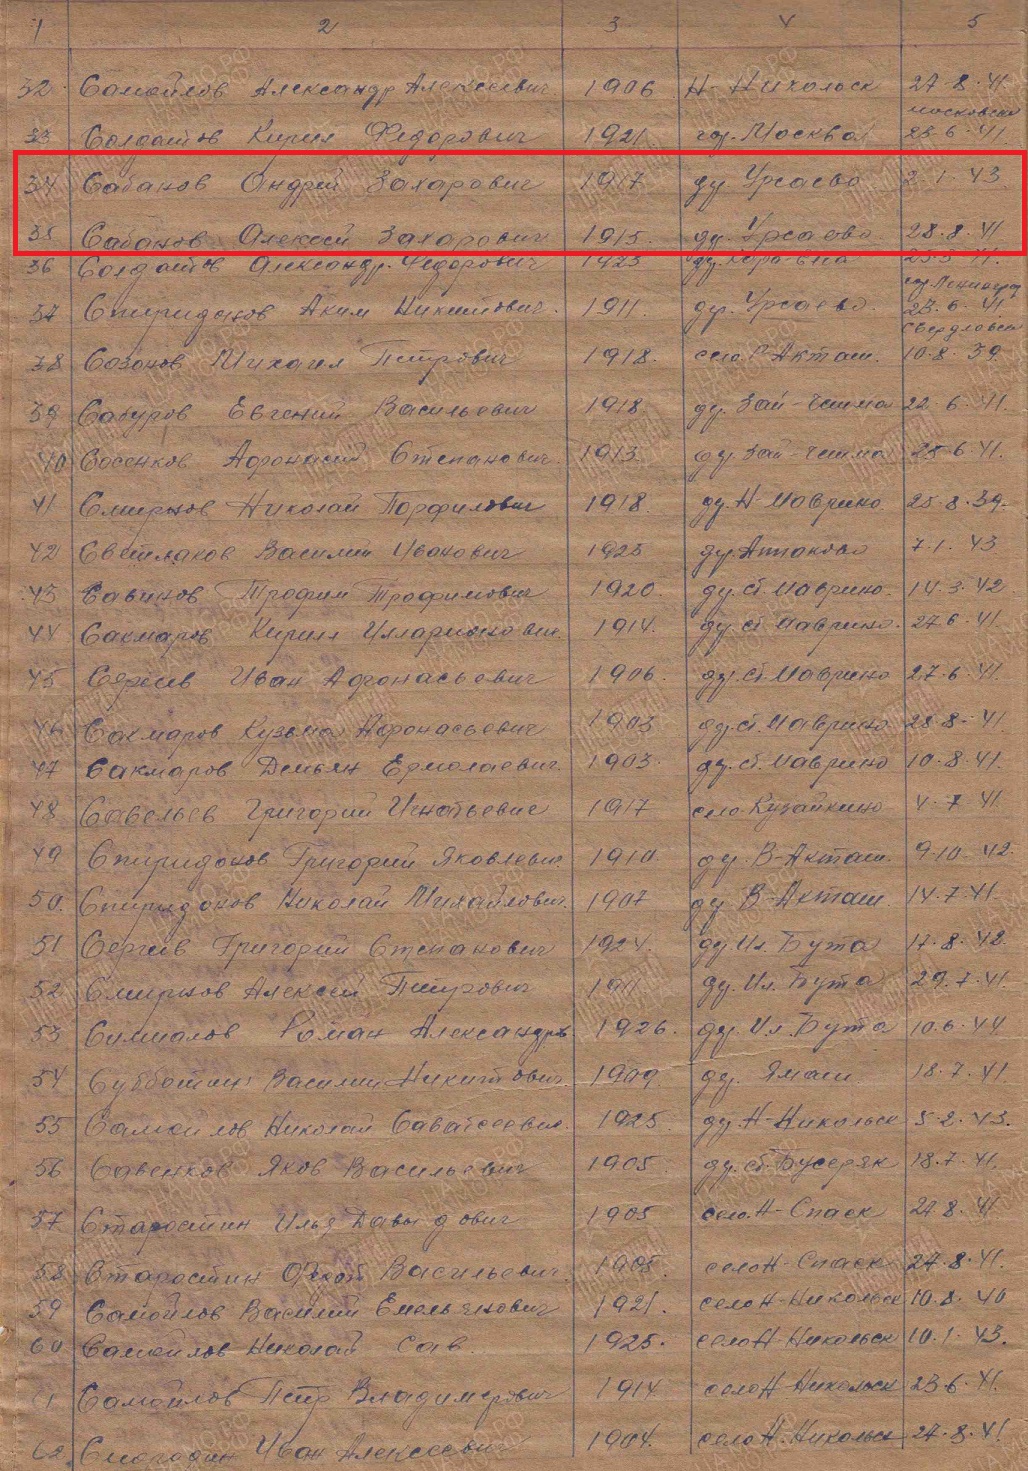 1 2 3 4 5
32. Самойлов Александр Алексеевич 1906 Н-Никольск 27-8-41
московск
33 Солдатов Кирил Федорович 1921 гор. Москва 23.6.41.
34 Сабанов Андрей Захарович 1917 ду Урсаево 2.1.43
35 Сабанов Алексей Захарович 1915. ду. Урсаево 28.8.41
36 Солдатов Александр. Федорович 1923
37 Спиридонов Аким Никитович. 1911. ду. Урсаево. 23.6.41.
Свердловск
38 Созонов Михаил Петрович 1918. село В-Акташ. 10.8.39
39 Сабуров Евгений Васильевич 1918 ду. Зай-Чишма 22.6.41.
40 Сосенков Афонасий Степанович. 1913 ду. Зай-Чишма 25.6.41.
41 Смирнов Николай Порфилович 1918 ду. Н-Маврино. 25.8.39.
42 Светлаков Василий Иванович 1925 ду. 7.1.43
43 Савинов Трофим Трофимович 1920 ду. ст. Маврино. 14.3.42
44 Сакмаров Кирил Илларионович. 1914. ду. ст. Маврино. 27.6.41
45 Сергеев Иван Афонасьевич 1906. ду. ст. Маврино 27.6.41.
46 Сакмаров Кузьма Афонасьевич 1903 ду. ст. Маврино 28.8.41
47 Сакмаров Демьян Ермолаевич. 1903. ду. ст. Маврино 10.8.41.
48 Савельев Григорий Игнатьевич 1917 село Кузайкино 4.7.41
49 Спиридонов Григорий Яковлевич 1910. ду. В-Акташ. 9.10.42.
50. Спиридонов Николай Михайлович. 1907 ду В-Акташ. 14.7.41.
51 Сергеев Григорий Степанович 1924. ду Ил. Бута 17.8.42.
52 Смирнов Алексей Петрович 1911 ду. Ил. Бута 29.7.41.
53 Роман Александров 1926. ду. Ил. Бута 10.6.44
54 Субботин Василий Никитович. 1909. ду. Ямаш 18.7.41.
55 Самойлов Николай 1925. ду. Н-Никольск 5.2.43.
56 Савенков Яков Васильевич 1905. ду. ст. Бусеряк 18.7.41.
57 Старостин Илья Давыдович 1905 село. Н-Спаск 27.8.41
58 Старостин Васильевич. 1905. село Н-Спаск 27.8.41.
59 Самойлов Василий Емельянович 1921. село Н-Никольск 10.8.40
60 Самойлов Николай Сав. 1925. село Н-Никольск 10.1.43.
Самойлов Петр Владимерович 1914 село Н-Никольск 23.6.41.
62. Смородин Иван Алексеевич 1904. село Н. Никольск 27.8.41